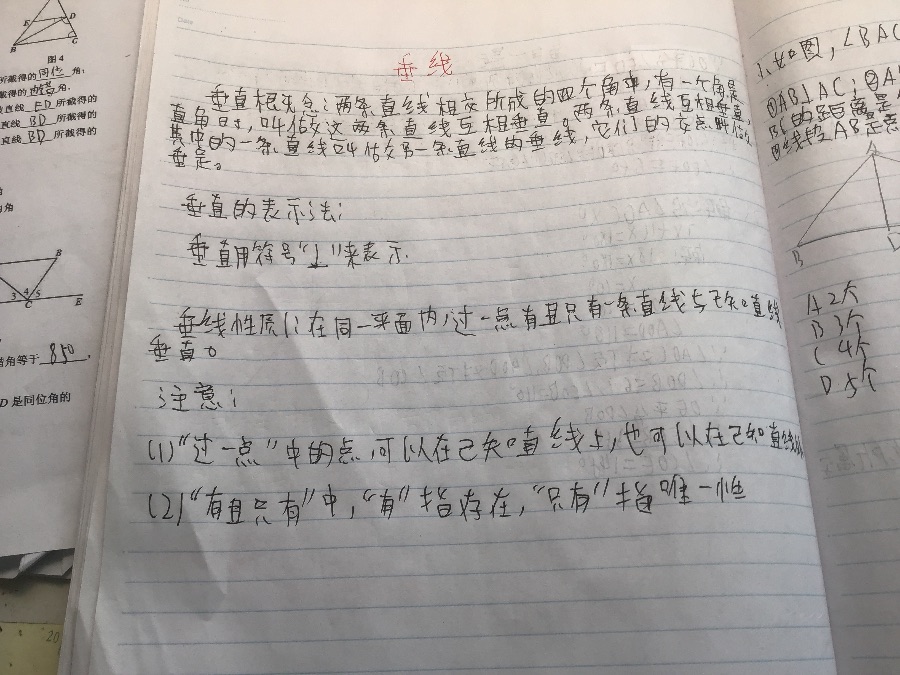 图4
所截得的同位角;
截得的内错角.
直线 ED 所截得的
直线 BD 所截得的
直线 BD 所截得的
角
B
3 4 5
C
E
错角等于 85°.
D是同位角的
Date
垂线
垂直概念:两条直线相交所成的四个角中,有一个角是
直角时,叫做这两条直线互相垂直。两条直线互相垂直,
其中的一条直线叫做另一条直线的垂线,它们的交点叫做
垂足。
垂直的表示法:
垂直用符号“⊥”来表示.
垂线性质1:在同一平面内,过一点有且只有一条直线与已知直线
垂直。
注意:
(1)“过一点”中的点,可以在已知直线上,也可以在已知直线
(2)“有且只有”中,“有”指存在,“只有”指唯一性
1.如图,∠BAC
①AB⊥AC;②A
的距离是
线段AB是点
A
B
D
A 2个
B 3个
C 4个
D 5个